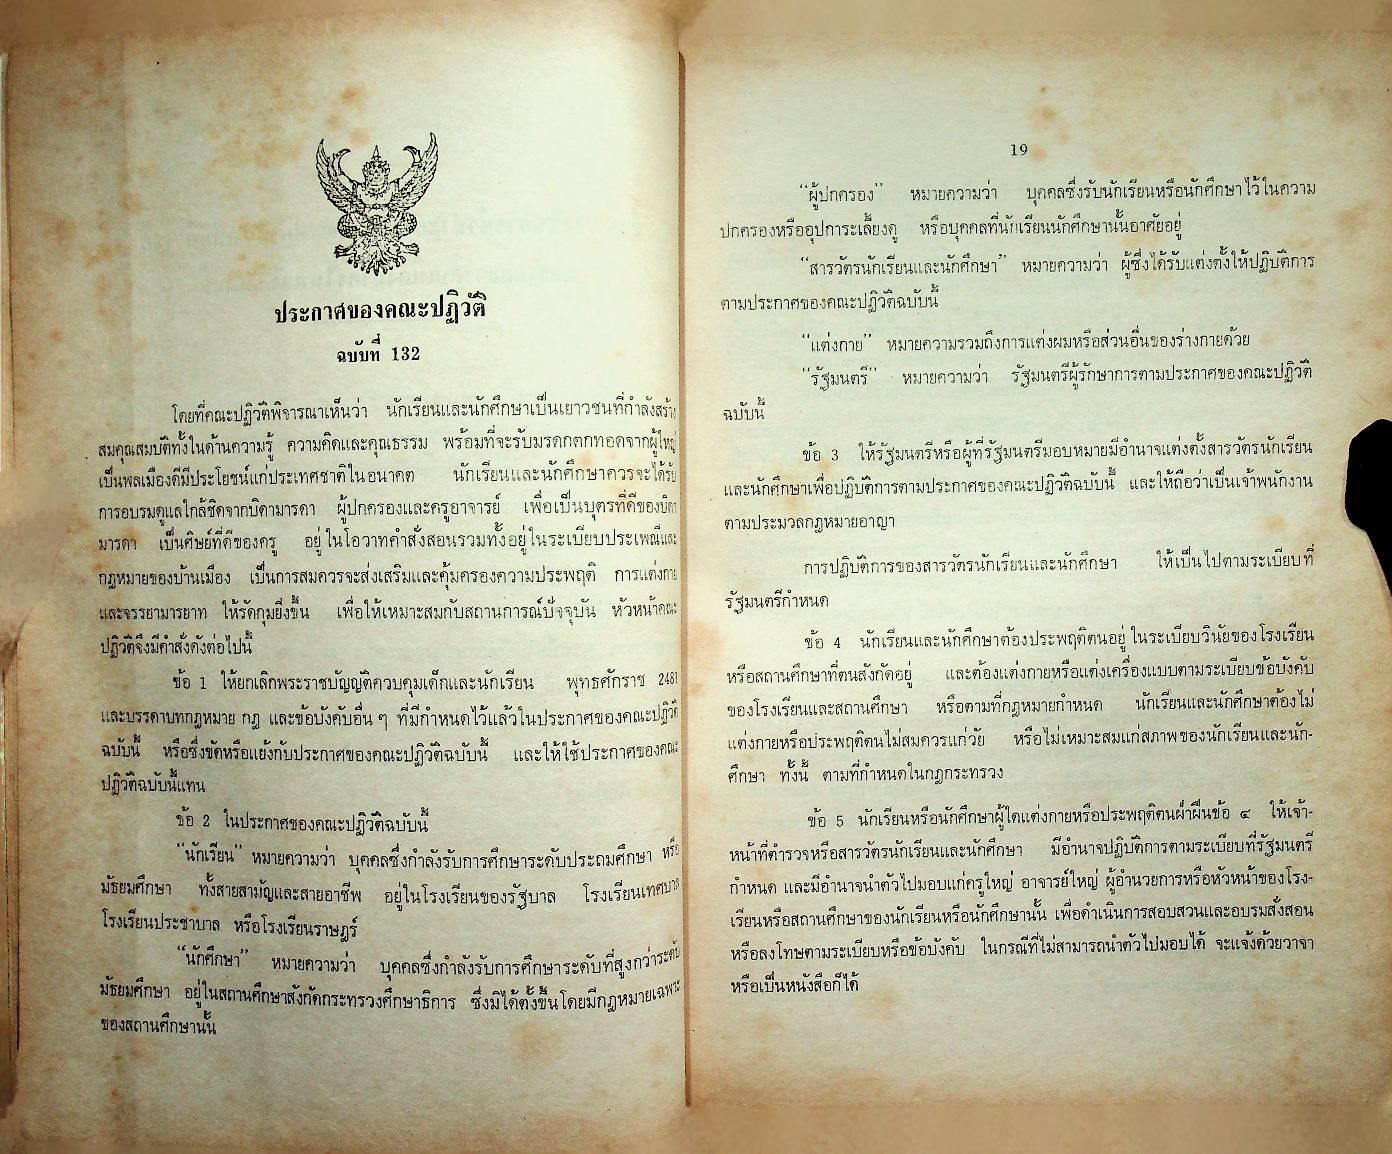 ประกาศของคณะปฏิวัติ
ฉบับที่ 132
โดยที่คณะปฏิวัติพิจารณาเห็นว่า นักเรียนและนักศึกษาเป็นเยาวชนที่กำลังสร้าง
สมคุณสมบัติทั้งในด้านความรู้ ความคิดและคุณธรรม พร้อมที่จะรับมรดกตกทอดจากผู้ใหญ่
เป็นพลเมืองดีมีประโยชน์แก่ประเทศชาติในอนาคต นักเรียนและนักศึกษาควรจะได้รับ
การอบรมดูแลใกล้ชิดจากบิดามารดา ผู้ปกครองและครูอาจารย์ เพื่อเป็นบุตรที่ดีของบิดา
มารดา เป็นศิษย์ที่ดีของครู อยู่ในโอวาทคำสั่งสอนรวมทั้งอยู่ในระเบียบประเพณีและ
กฎหมายของบ้านเมือง เป็นการสมควรจะส่งเสริมและคุ้มครองความประพฤติ การแต่งกาย
และจรรยามารยาท ให้รัดกุมยิ่งขึ้น เพื่อให้เหมาะสมกับสถานการณ์ปัจจุบัน หัวหน้าคณะ
ปฏิวัติจึงมีคำสั่งดังต่อไปนี้
ข้อ 1 ให้ยกเลิกพระราชบัญญัติควบคุมเด็กและนักเรียน พุทธศักราช 2481
และบรรดาบทกฎหมาย กฎ และข้อบังคับอื่น ๆ ที่มีกำหนดไว้แล้วในประกาศของคณะปฏิวัติ
ฉบับนี้ หรือซึ่งขัดหรือแย้งกับประกาศของคณะปฏิวัติฉบับนี้ และให้ใช้ประกาศของคณะ
ปฏิวัติฉบับนี้แทน
ข้อ 2 ในประกาศของคณะปฏิวัติฉบับนี้
“นักเรียน” หมายความว่า บุคคลซึ่งกำลังรับการศึกษาระดับประถมศึกษา หรือ
มัธยมศึกษา ทั้งสายสามัญและสายอาชีพ อยู่ในโรงเรียนของรัฐบาล โรงเรียนเทศบาล
โรงเรียนประชาบาล หรือโรงเรียนราษฎร์
“นักศึกษา” หมายความว่า บุคคลซึ่งกำลังรับการศึกษาระดับที่สูงกว่าระดับ
มัธยมศึกษา อยู่ในสถานศึกษาสังกัดกระทรวงศึกษาธิการ ซึ่งมิได้ตั้งขึ้นโดยมีกฎหมายเฉพาะ
ของสถานศึกษานั้น
19
“ผู้ปกครอง” หมายความว่า บุคคลซึ่งรับนักเรียนหรือนักศึกษาไว้ในความ
ปกครองหรืออุปการะเลี้ยงดู หรือบุคคลที่นักเรียนนักศึกษานั้นอาศัยอยู่
“สารวัตรนักเรียนและนักศึกษา” หมายความว่า ผู้ซึ่งได้รับแต่งตั้งให้ปฏิบัติการ
ตามประกาศของคณะปฏิวัติฉบับนี้
“แต่งกาย” หมายความรวมถึงการแต่งผมหรือส่วนอื่นของร่างกายด้วย
“รัฐมนตรี” หมายความว่า รัฐมนตรีผู้รักษาการตามประกาศของคณะปฏิวัติ
ฉบับนี้
ข้อ 3 ให้รัฐมนตรีหรือผู้ที่รัฐมนตรีมอบหมายมีอำนาจแต่งตั้งสารวัตรนักเรียน
และนักศึกษาเพื่อปฏิบัติการตามประกาศของคณะปฏิวัติฉบับนี้ และให้ถือว่าเป็นเจ้าพนักงาน
ตามประมวลกฎหมายอาญา
การปฏิบัติการของสารวัตรนักเรียนและนักศึกษา ให้เป็นไปตามระเบียบที่
รัฐมนตรีกำหนด
ข้อ 4 นักเรียนและนักศึกษาต้องประพฤติตนอยู่ในระเบียบวินัยของโรงเรียน
หรือสถานศึกษาที่ตนสังกัดอยู่ และต้องแต่งกายหรือแต่งเครื่องแบบตามระเบียบข้อบังคับ
ของโรงเรียนและสถานศึกษา หรือตามที่กฎหมายกำหนด นักเรียนและนักศึกษาต้องไม่
แต่งกายหรือประพฤติตนไม่สมควรแก่วัย หรือไม่เหมาะสมแก่สภาพของนักเรียนและนัก-
ศึกษา ทั้งนี้ ตามที่กำหนดในกฎกระทรวง
ข้อ 5 นักเรียนหรือนักศึกษาผู้ใดแต่งกายหรือประพฤติตนฝ่าฝืนข้อ ๔ ให้เจ้า-
หน้าที่ตำรวจหรือสารวัตรนักเรียนและนักศึกษา มีอำนาจปฏิบัติการตามระเบียบที่รัฐมนตรี
กำหนด และมีอำนาจนำตัวไปมอบแก่ครูใหญ่ อาจารย์ใหญ่ ผู้อำนวยการหรือหัวหน้าของโรง-
เรียนหรือสถานศึกษาของนักเรียนหรือนักศึกษานั้น เพื่อดำเนินการสอบสวนและอบรมสั่งสอน
หรือลงโทษตามระเบียบหรือข้อบังคับ ในกรณีที่ไม่สามารถนำตัวไปมอบได้ จะแจ้งด้วยวาจา
หรือเป็นหนังสือก็ได้